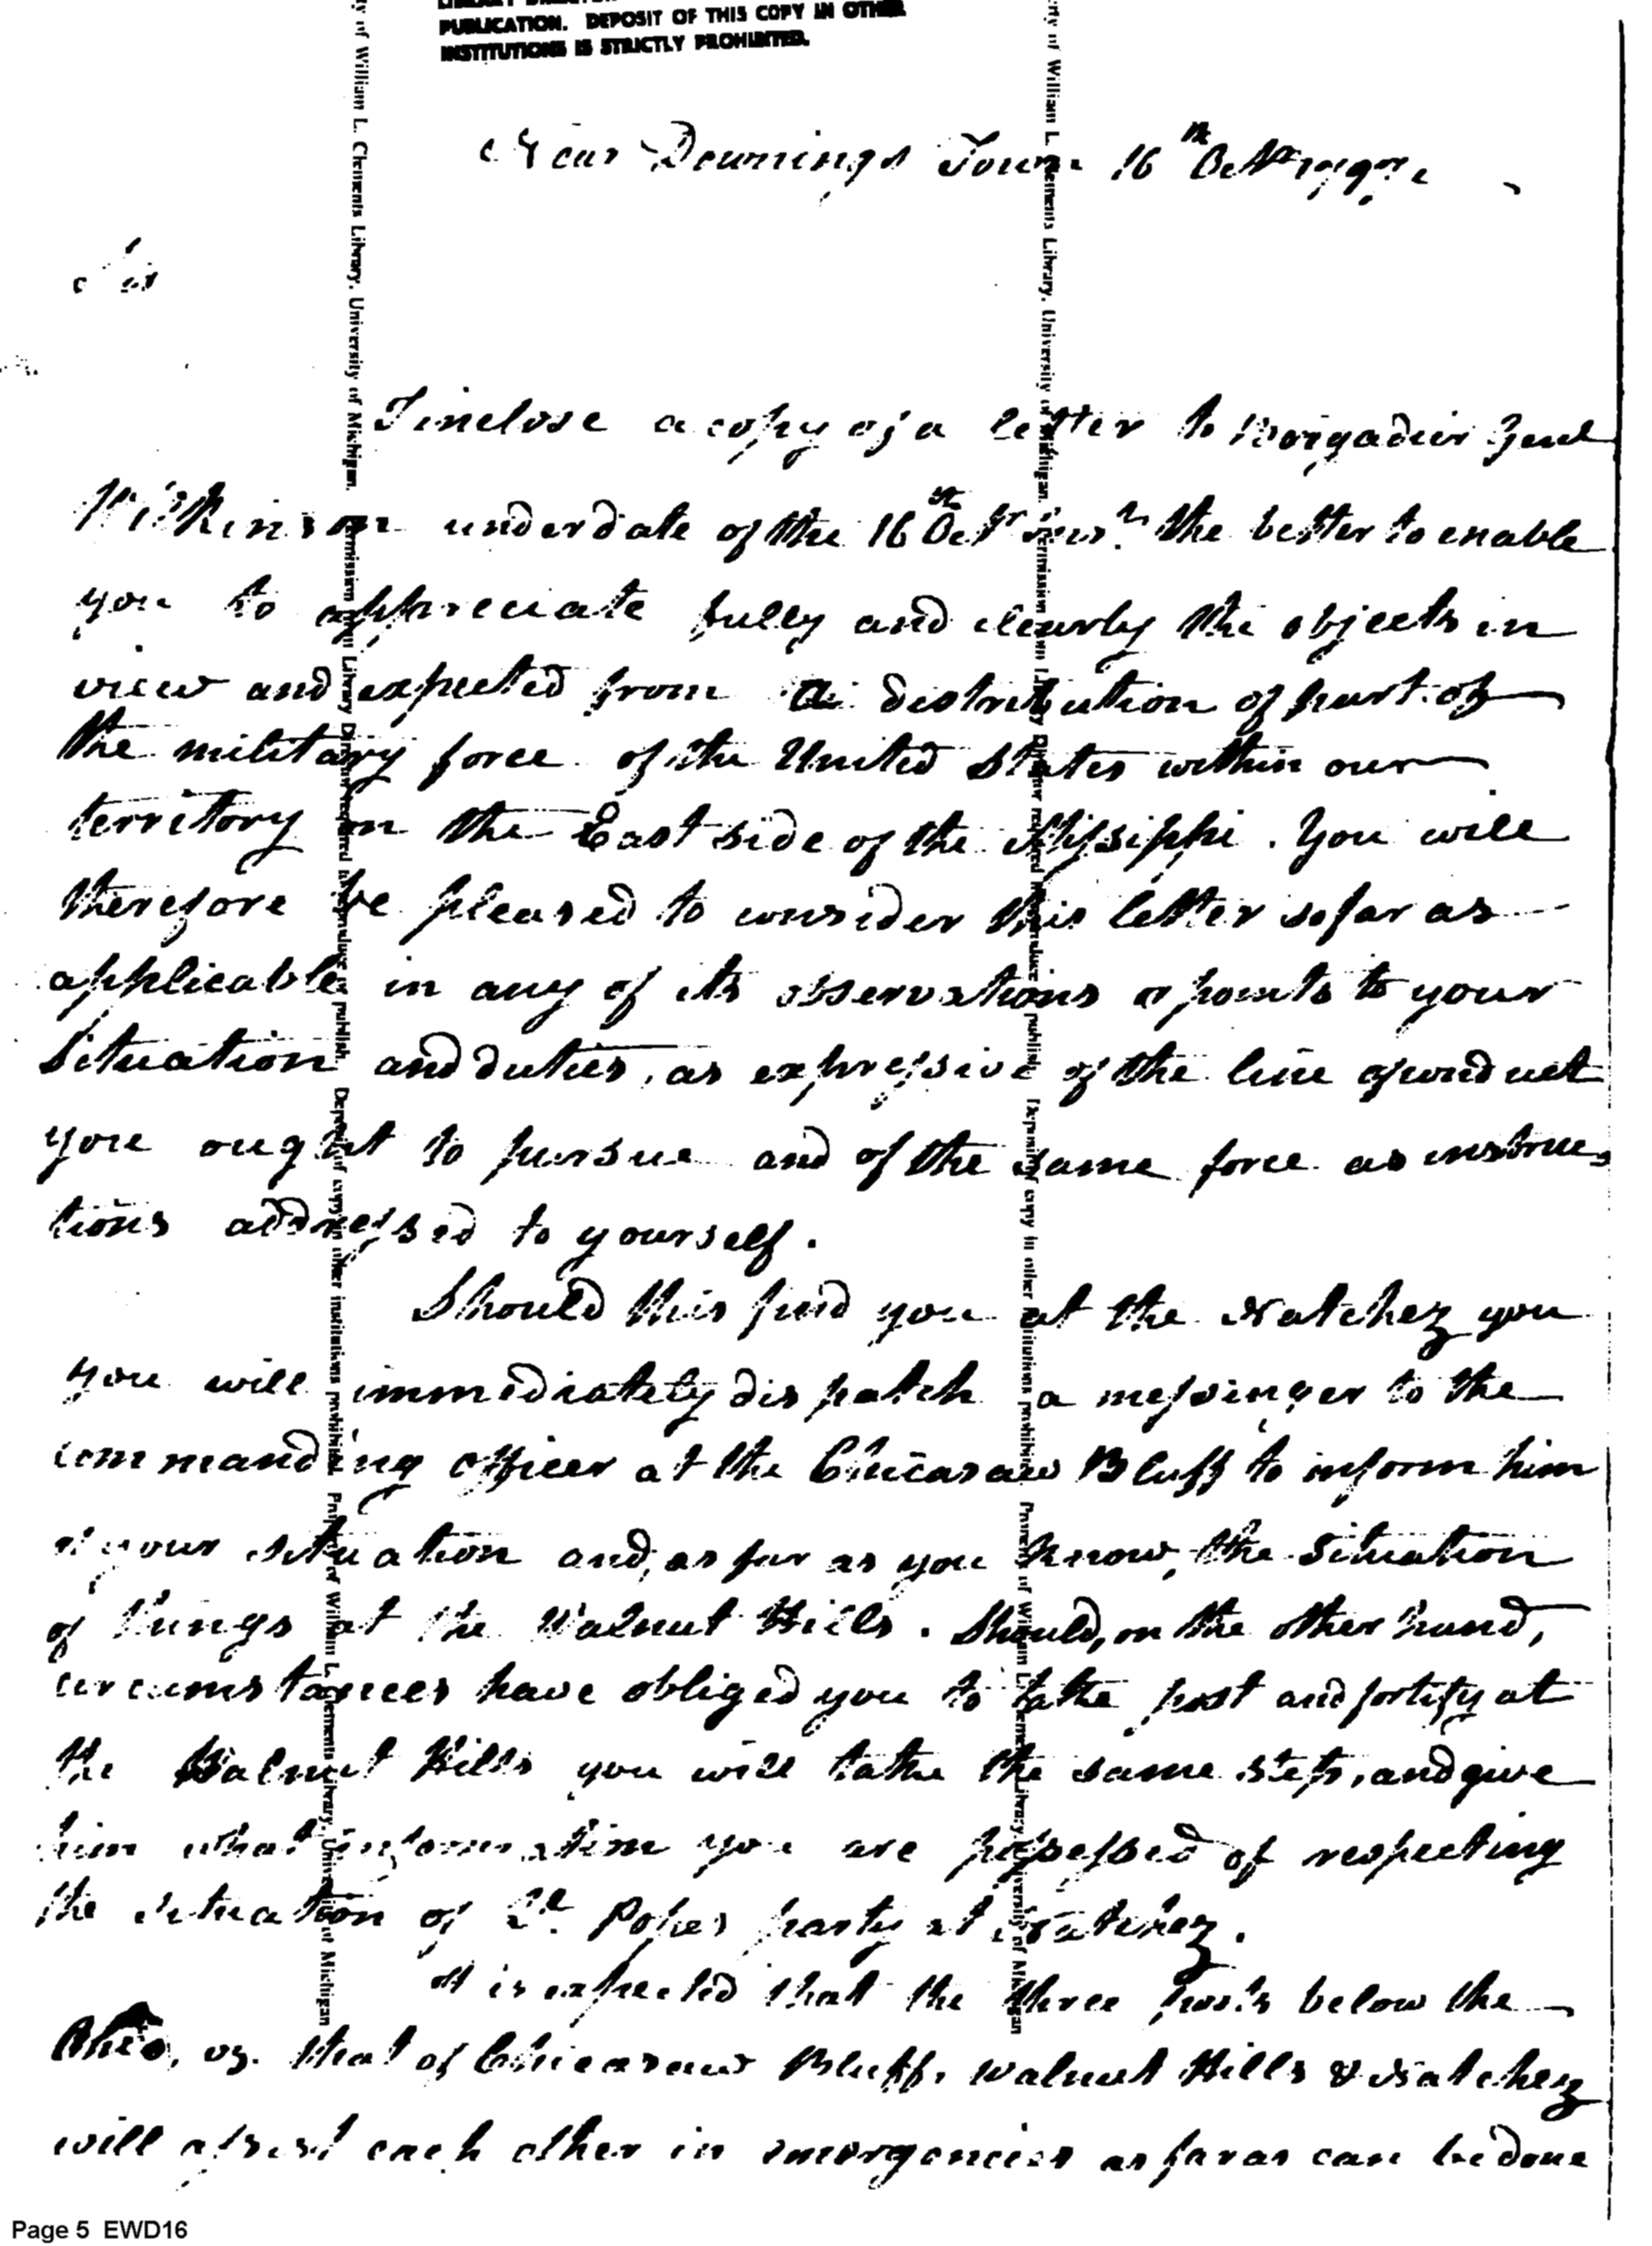 PUBLICATION. DEPOSIT OF THIS COPY IN OTHER
INSTITUTIONS IS STRICTLY PROHIBITED.
Near Downings Town 16th Octr 1797
Sir
I inclose a copy of a letter to Brigadier Genl
Wilkinson under date of the 16th Octr inst. the better to enable
you to appreciate fully and clearly the objects in
view and expected from a distribution of part of
the military force of the United States within our
territory on the East side of the Missippi. You will
therefore be pleased to consider this letter so far as
applicable in any of its observations or points to your
Situation and duties, as expressive of the line of conduct
you ought to pursue and of the same force as instruc-
tions addressed to yourself.
Should this find you at the Natchez you
you will immediately dispatch a messenger to the
commanding officer at the Chicasaw Bluff to inform him
of your situation and, as far as you know, the situation
of things at the Walnut Hills. Should, on the other hand,
circumstances have obliged you to take post and fortify at
the Walnut Hills you will take the same step, and give
him what information you are possessed of respecting
the situation of Lt. Popes party at Natchez.
It is expected that the three posts below the
Ohio, vz. that of Chicasaw Bluff, Walnut Hills & Natchez
will assist each other in emergencies as far as can be done
Property of William L. Clements Library, University of Michigan.
Permission of Library Director required to reproduce or publish. Deposit of copy in other institutions prohibited.
Property of William L. Clements Library, University of Michigan
Page 5 EWD16